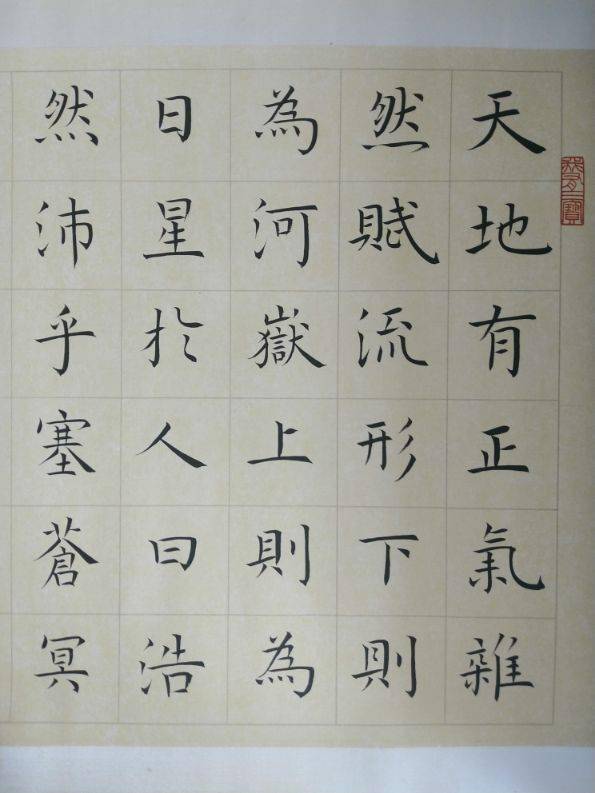 天地有正氣雜
然賦流形下則
為河嶽上則為
日星於人曰浩
然沛乎塞蒼冥